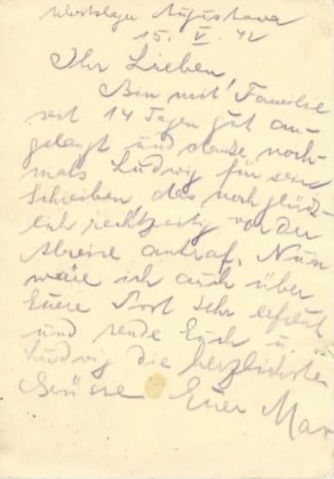 15. V. 42
Ihr Lieben!
Bin mit Familie
seit 14 Tagen gut an-
gelangt und danke noch-
mals Ludwig für sein
Schreiben, das noch glück-
lich rechtzeitig vor der
Abreise antraf. Nun
wäre ich auch über
Euere Post sehr erfreut
und sende Euch u.
Ludwig die herzlichsten
Grüsse Euer Max